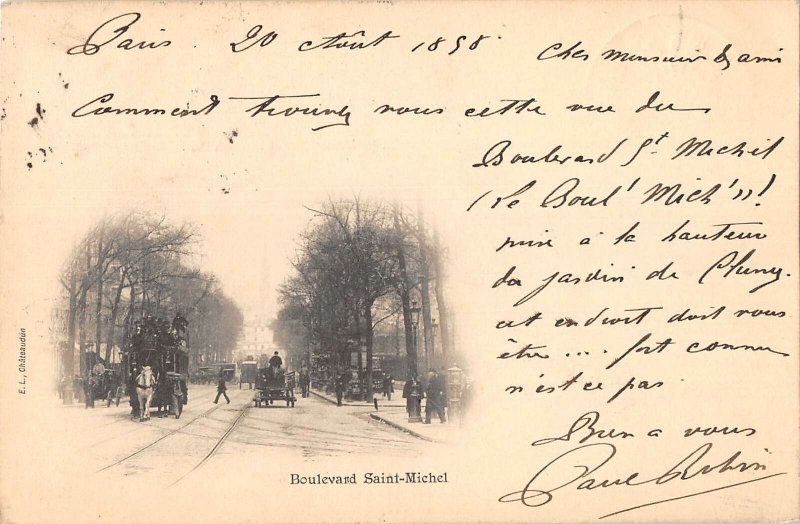 Paris 20 Août 1898
Cher monsieur & ami
Comment trouvez vous cette vue du
Boulevard St Michel
(le Boul' Mich'»!
prise à la hauteur
du jardin de Cluny.
cet endroit doit vous
être... fort connu
n'est ce pas.
Bien a vous
Paul Robin
E. L., Châteaudun
Boulevard Saint-Michel